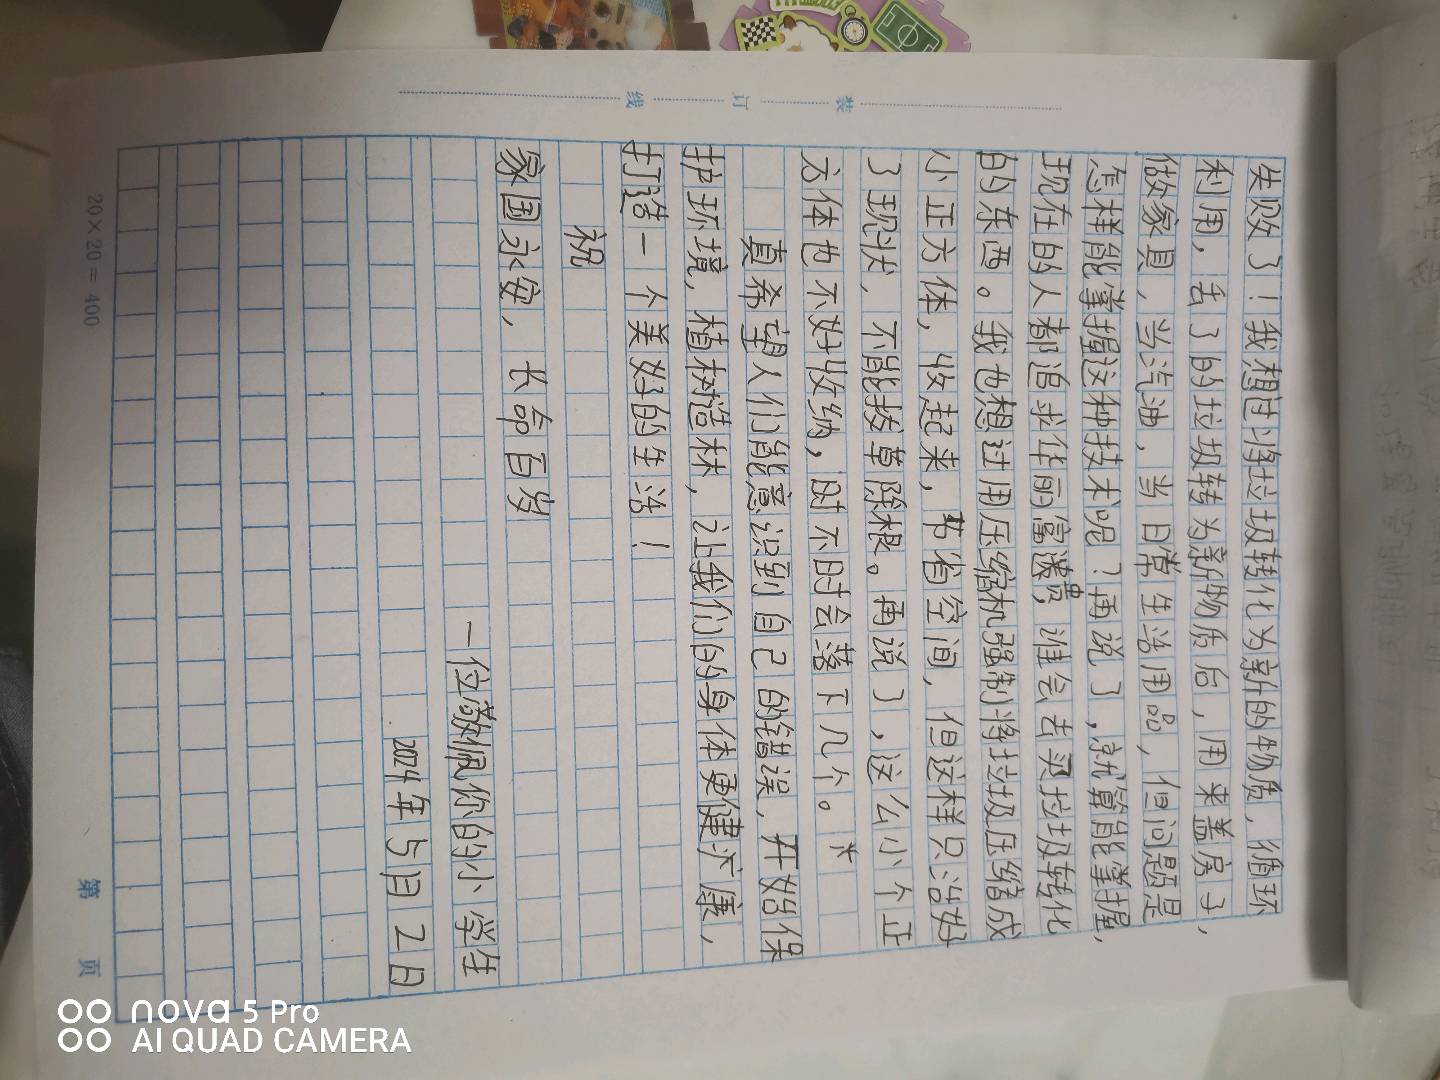 装 订 线
失败了！我想过将垃圾转化为新的物质，循环
利用，丢了的垃圾转为新物质后，用来盖房子，
做家具，当汽油，当日常生活用品，但问题是
怎样能掌握这种技术呢？再说了，就算能掌握，
现在的人都追求华丽富贵，谁会去买垃圾转化
的东西。我也想过用压缩机强制将垃圾压缩成
小正方体，收起来，节省空间，但这样只治好
了现状，不能拔草除根。再说了，这么小个正
方体也不好收纳，时不时会落下几个。
真希望人们能意识到自己的错误，开始保
护环境，植树造林，让我们的身体更健康，
打造一个美好的生活！
祝
家国永安，长命百岁
一位敬佩你的小学生
2024年5月2日
20×20=400
第 页
nova 5 Pro
AI QUAD CAMERA